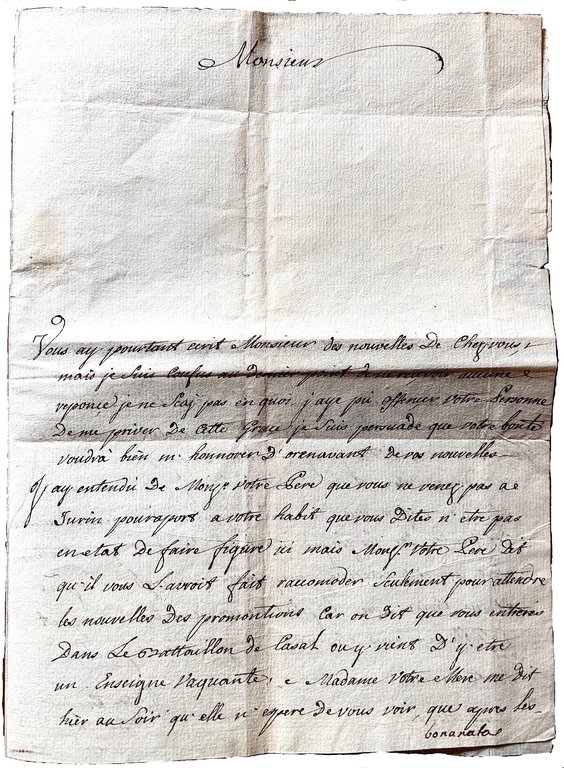 Monsieur
Vous ay pourtant ecrit Monsieur des nouvelles De Chez vous,
mais je suis Confus au Dernier point de aucune
reponce je ne Scaj pas en quoi j'aye pû offencer votre Personne
De me priver De Cette Grace je Suis persuadé que votre bonté
voudrá bien m'honnorer D'orenavant de vos nouvelles
J'ay entendû De Monsr votre Pere que vous ne venez pas a
Turin pourraport a votre habit que vous Dites n'etre pas
en etat De faire figure ici mais Monsr votre Pere Dit
qu'il vous L'avroit fait raccomoder Seulement pour attendre
les nouvelles Des promontions Car on Dit que vous entreres
Dans Le Battaillon de Casal ou y vient D'y etre
un Enseigne vaquante, e Madame votre Mere me Dit
hier au Soir qu'elle n'espere De vous voir, que apres les